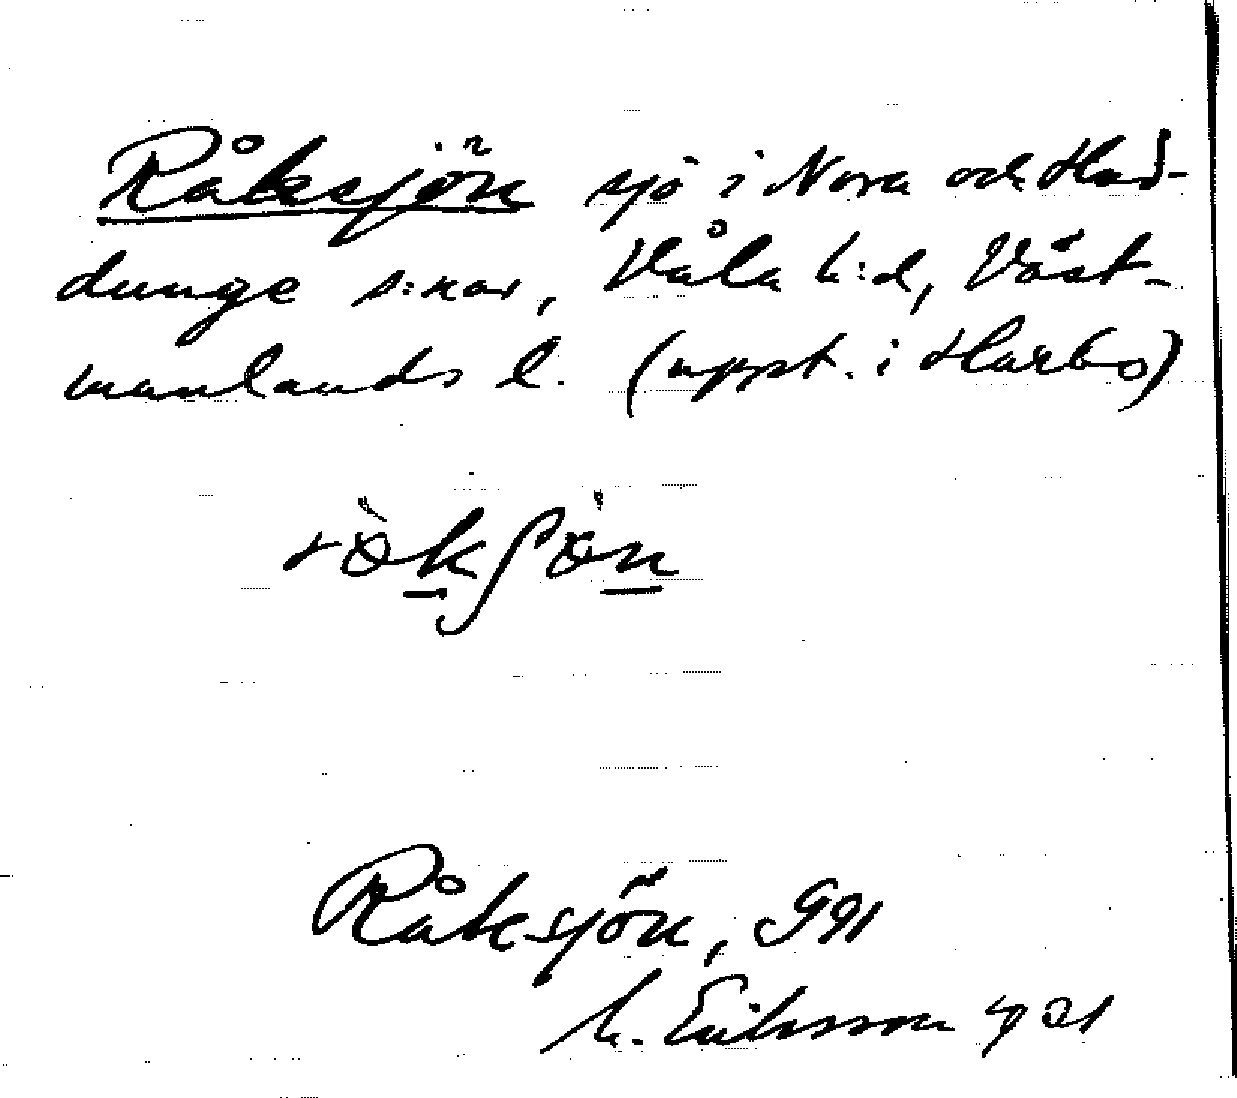 Råksjön sjö i Nora och Hud-
dunge s:nar, Våla h:d, Väst-
manlands l. (uppt. i Harbo)
Råksjön, GM
M. Eriksson 1921